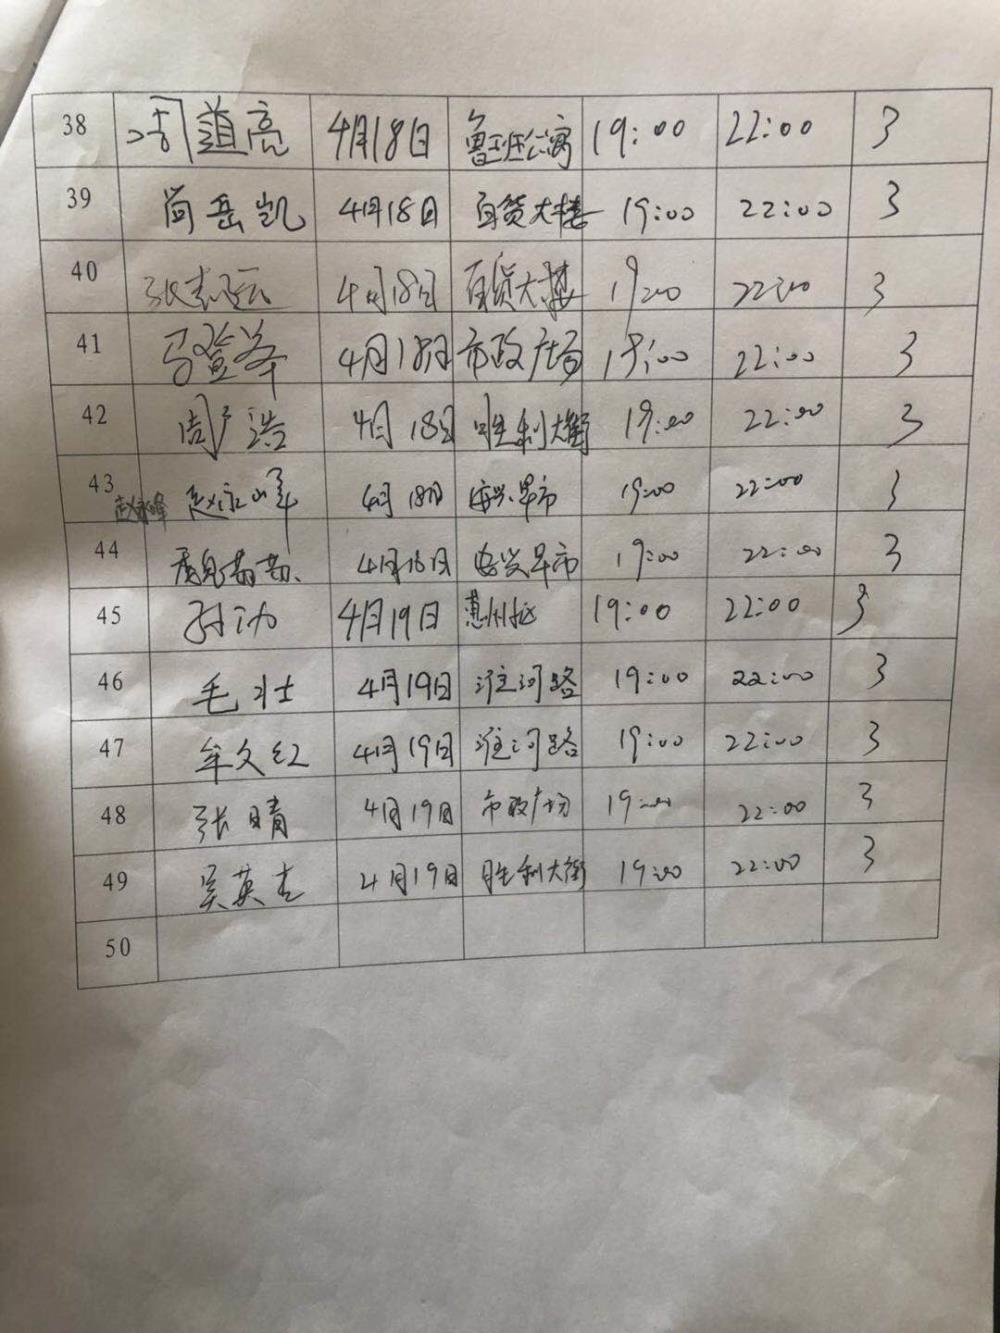 38 道高 4月18日 鲁班公寓 19:00 22:00 3
39 尚岳凯 4月18日 百货大楼 19:00 22:00 3
40 张志远 4月18日 百货大楼 19:00 22:00 3
41 马登峰 4月18日 市政广场 19:00 22:00 3
42 周广浩 4月18日 胜利大街 19:00 22:00 3
43 赵永峰 赵永峰 4月18日 早市 19:00 22:00 3
44 4月18日 早市 19:00 22:00 3
45 孙功 4月19日 惠州 19:00 22:00 3
46 毛壮 4月19日 淮河路 19:00 22:00 3
47 牟文红 4月19日 淮河路 19:00 22:00 3
48 张晴 4月19日 市政广场 19:00 22:00 3
49 吴英杰 4月19日 胜利大街 19:00 22:00 3
50